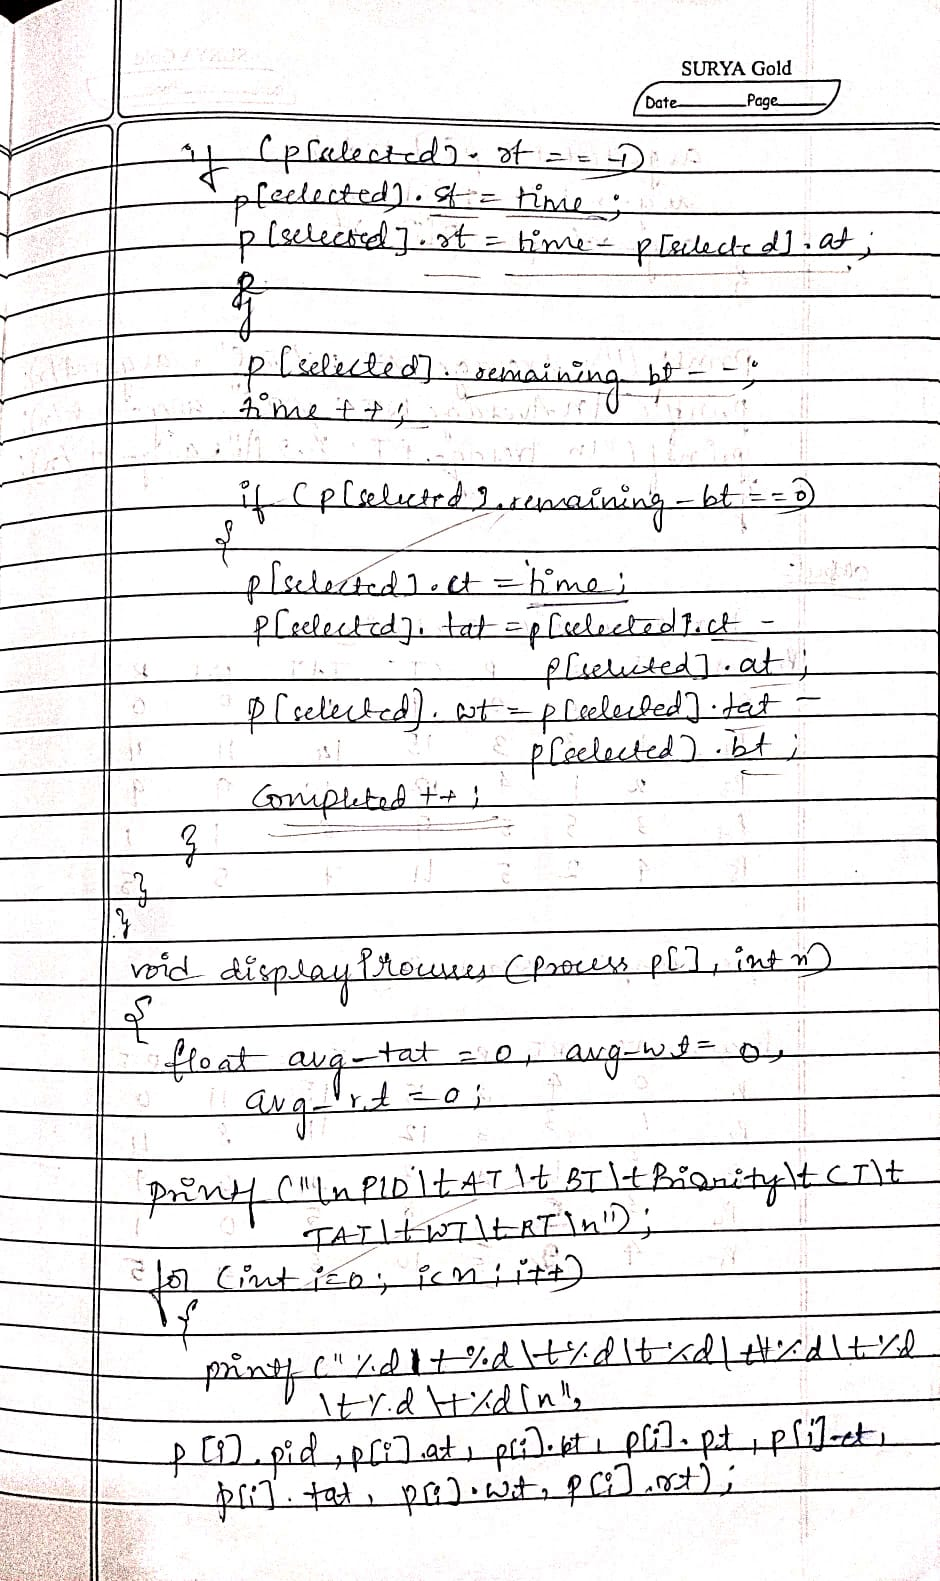 SURYA Gold
Date Page
if (p[selected].rt == -1)
p[selected].st = time;
p[selected].rt = time - p[selected].at;
}
p[selected].remaining_bt--;
time++;
if (p[selected].remaining_bt == 0)
{
p[selected].ct = time;
p[selected].tat = p[selected].ct -
p[selected].at;
p[selected].wt = p[selected].tat -
p[selected].bt;
Completed ++;
}
}
}
void display Processes (Process p[], int n)
{
float avg_tat = 0, avg_wt = 0,
avg_rt = 0;
printf ("\n PID \t AT \t BT \t Priority \t CT \t
TAT \t WT \t RT \n");
for (int i=0; i<n; i++)
{
printf ("%d \t %d \t %d \t %d \t %d \t %d
\t %d \t %d \n",
p[i].pid, p[i].at, p[i].bt, p[i].pt, p[i].ct,
p[i].tat, p[i].wt, p[i].rt);